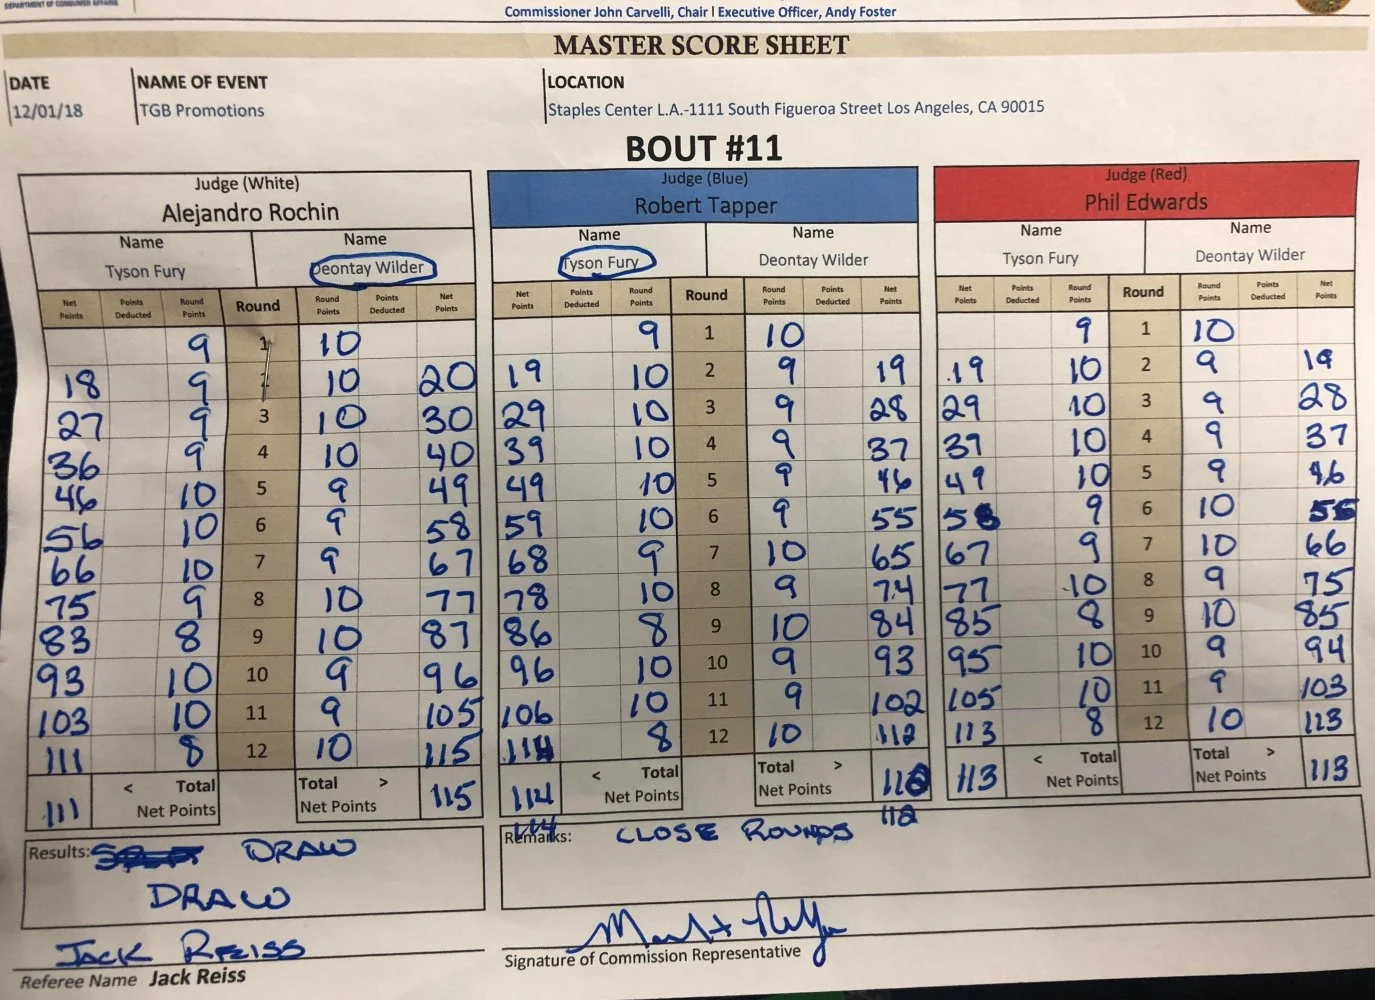 DEPARTMENT OF CONSUMER AFFAIRS
Commissioner John Carvelli, Chair | Executive Officer, Andy Foster
MASTER SCORE SHEET
DATE NAME OF EVENT LOCATION
12/01/18 TGB Promotions Staples Center L.A.-1111 South Figueroa Street Los Angeles, CA 90015
BOUT #11
Judge (White) Judge (Blue) Judge (Red)
Alejandro Rochin Robert Tapper Phil Edwards
Name Name Name Name Name Name
Tyson Fury Deontay Wilder Tyson Fury Deontay Wilder Tyson Fury Deontay Wilder
Net Points Points Deducted Round Points Round Round Points Points Deducted Net Points Net Points Points Deducted Round Points Round Round Points Points Deducted Net Points Net Points Points Deducted Round Points Round Round Points Points Deducted Net Points
9 1 10 9 1 10 9 1 10
18 9 2 10 20 19 10 2 9 19 19 10 2 9 19
27 9 3 10 30 29 10 3 9 28 29 10 3 9 28
36 9 4 10 40 39 10 4 9 37 39 10 4 9 37
46 10 5 9 49 49 10 5 9 46 49 10 5 9 46
56 10 6 9 58 59 10 6 9 55 58 9 6 10 56
66 10 7 9 67 68 9 7 10 65 67 9 7 10 66
75 9 8 10 77 78 10 8 9 74 77 10 8 9 75
83 8 9 10 87 86 8 9 10 84 85 8 9 10 85
93 10 10 9 96 96 10 10 9 93 95 10 10 9 94
103 10 11 9 105 106 10 11 9 102 105 10 11 9 103
111 8 12 10 115 114 8 12 10 112 113 8 12 10 113
111 < Total Net Points Total > Net Points 115 114 < Total Net Points Total > Net Points 112 113 < Total Net Points Total > Net Points 113
114 112
Results: DRAW Remarks: CLOSE ROUNDS
DRAW
JACK REISS
Signature of Commission Representative
Referee Name Jack Reiss